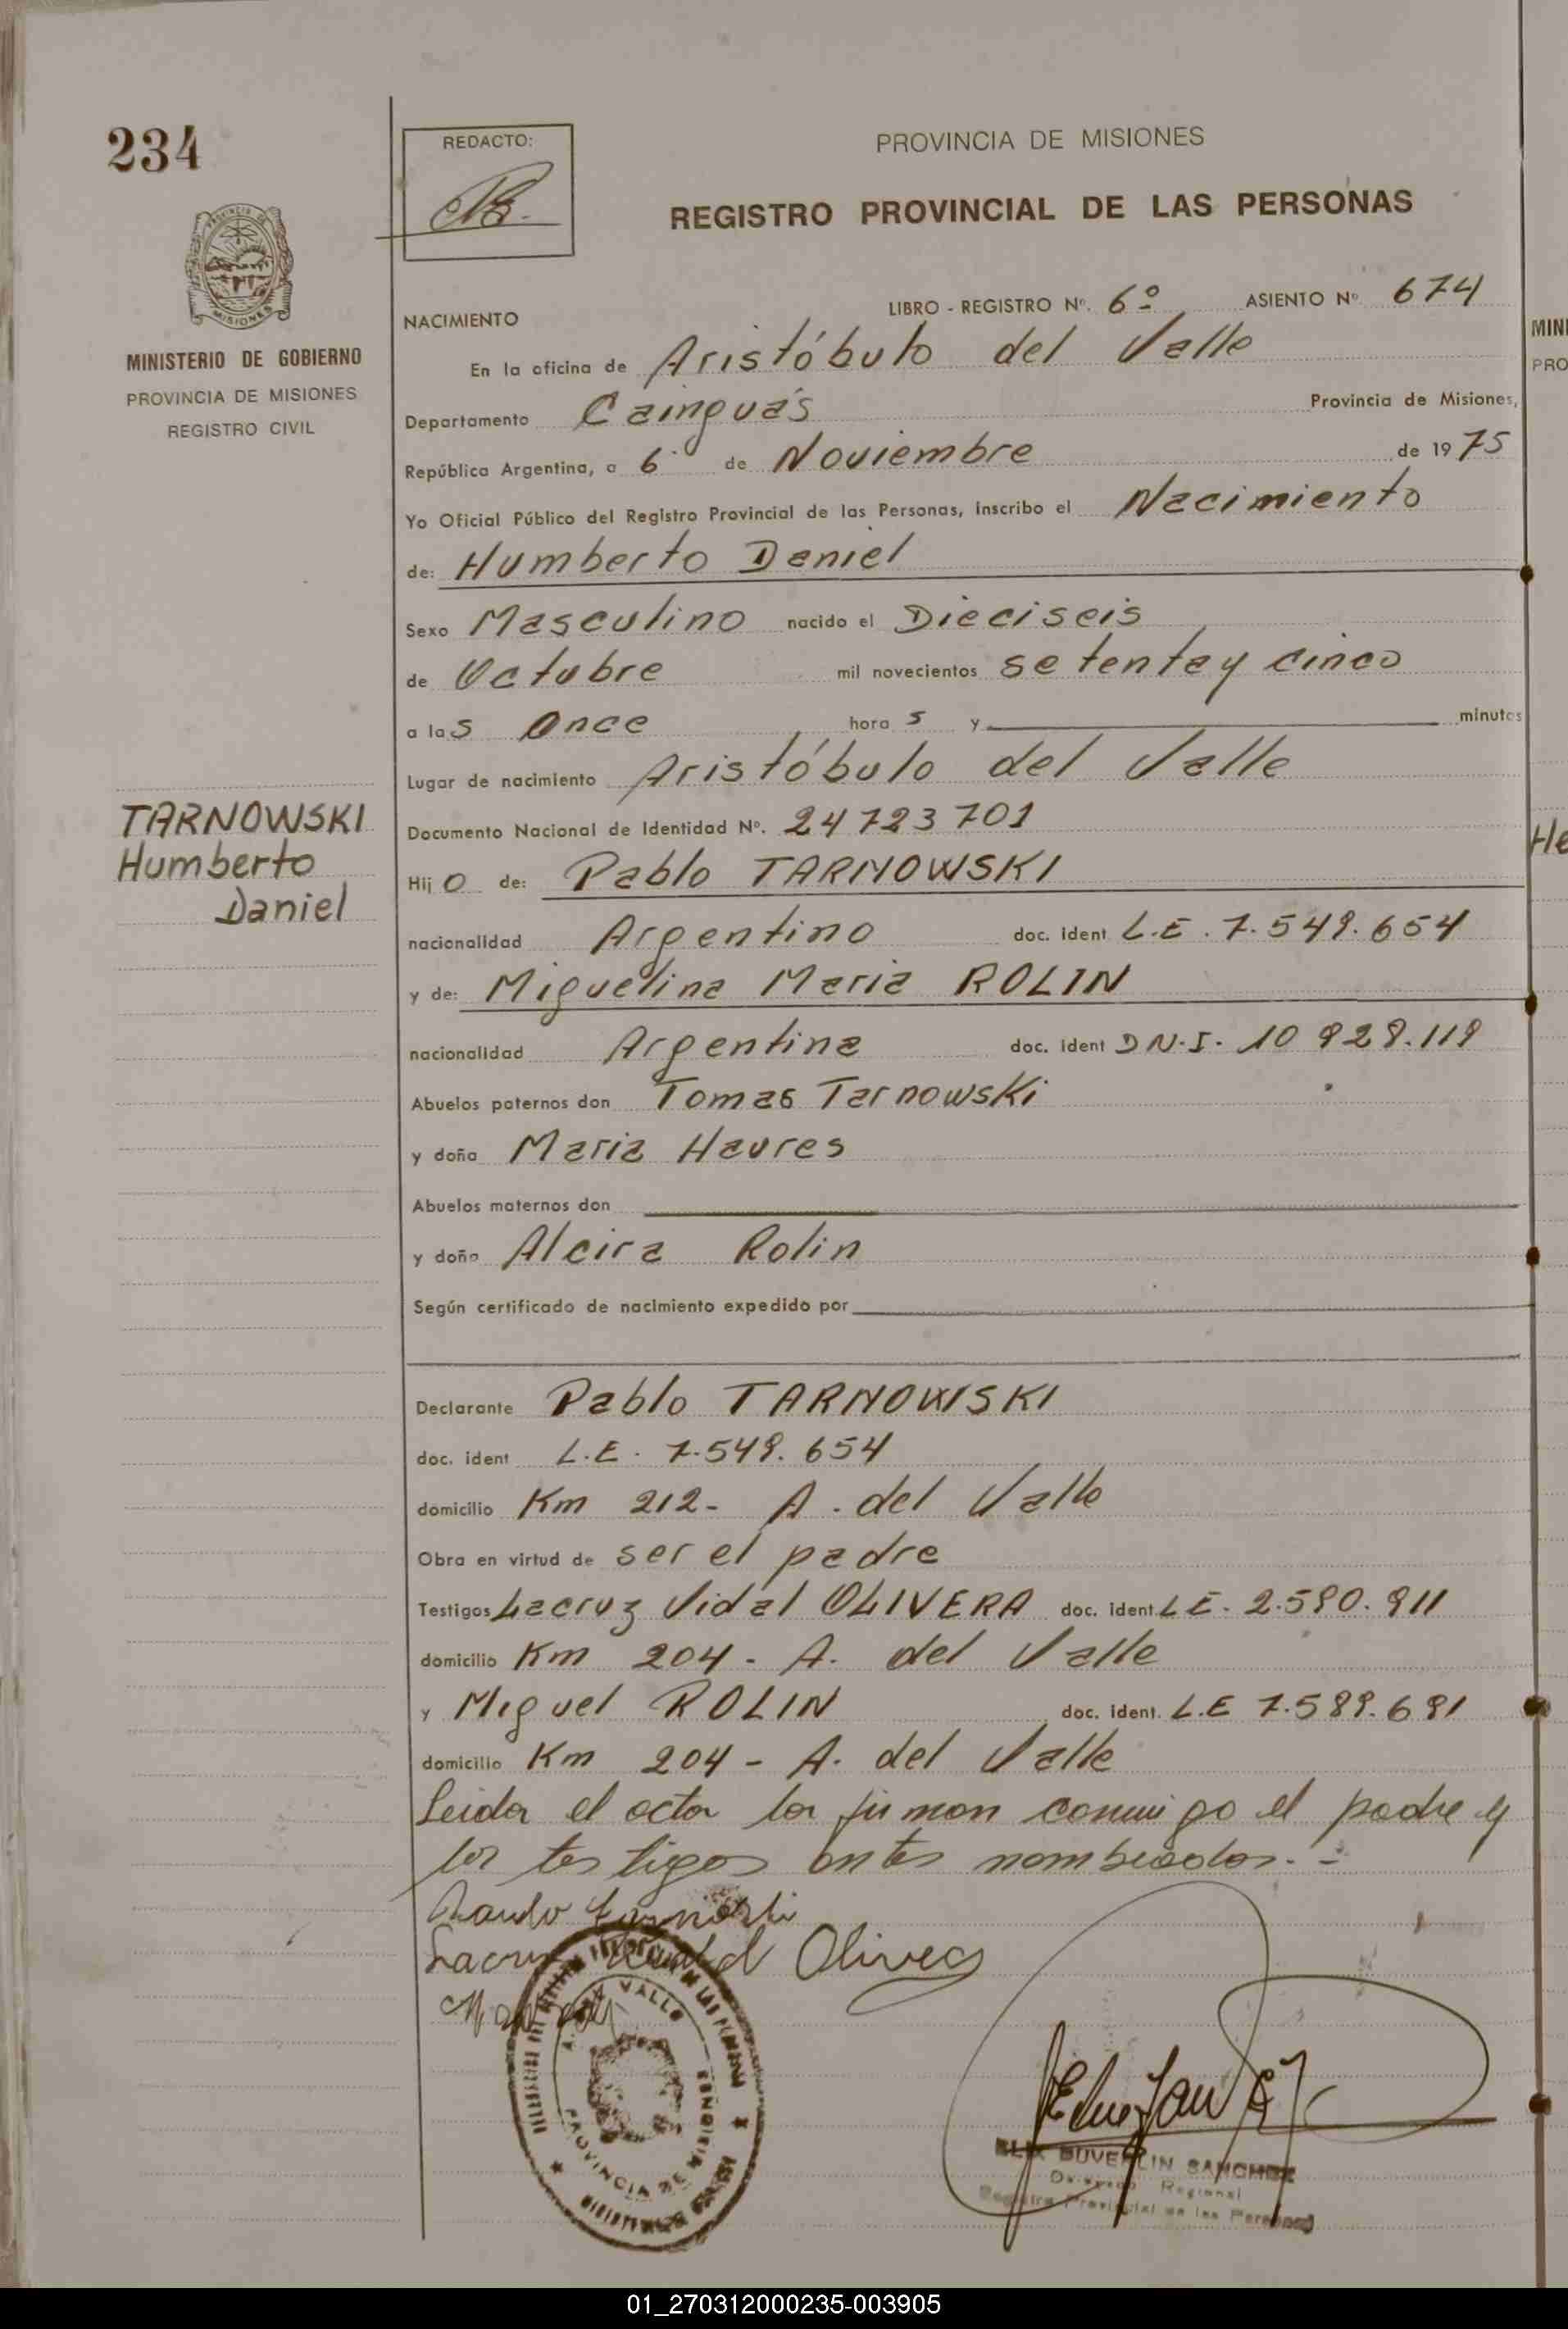 234
REDACTO:
PROVINCIA DE MISIONES
REGISTRO PROVINCIAL DE LAS PERSONAS
MISIONES
MINISTERIO DE GOBIERNO
PROVINCIA DE MISIONES
REGISTRO CIVIL
NACIMIENTO LIBRO - REGISTRO Nº. 6º ASIENTO Nº 674
En la oficina de Aristóbulo del Valle
Departamento Cainguás Provincia de Misiones,
República Argentina, a 6 de Noviembre de 1975
Yo Oficial Público del Registro Provincial de las Personas, inscribo el Nacimiento
de: Humberto Daniel
Sexo Masculino nacido el Dieciseis
de Octubre mil novecientos setenta y cinco
a las Once horas y minutos
Lugar de nacimiento Aristóbulo del Valle
TARNOWSKI
Humberto
Daniel
Documento Nacional de Identidad Nº. 24723701
Hijo de: Pablo TARNOWSKI
nacionalidad Argentino doc. ident L.E. 7.549.654
y de: Miguelina Maria ROLIN
nacionalidad Argentina doc. ident D.N.I. 10 929.119
Abuelos paternos don Tomas Tarnowski
y doña Maria Haures
Abuelos maternos don
y doña Alcira Rolin
Según certificado de nacimiento expedido por
Declarante Pablo TARNOWSKI
doc. ident L.E. 7.549.654
domicilio Km 212- A. del Valle
Obra en virtud de ser el padre
Testigos Lacruz Vidal OLIVERA doc. ident. L.E. 2.590.911
domicilio Km 204 - A. del Valle
y Miguel ROLIN doc. ident. L.E 7.589.691
domicilio Km 204 - A. del Valle
Leida el acta la firman conmigo el padre y
los testigos antes nombrados. -
Olivera
A. DEL VALLE
PROVINCIA DE MISIONES
ELIX DUVERLIN SANCHEZ
Delegado Regional
Registro Provincial de las Personas
MINI
PRO
He
01_270312000235-003905